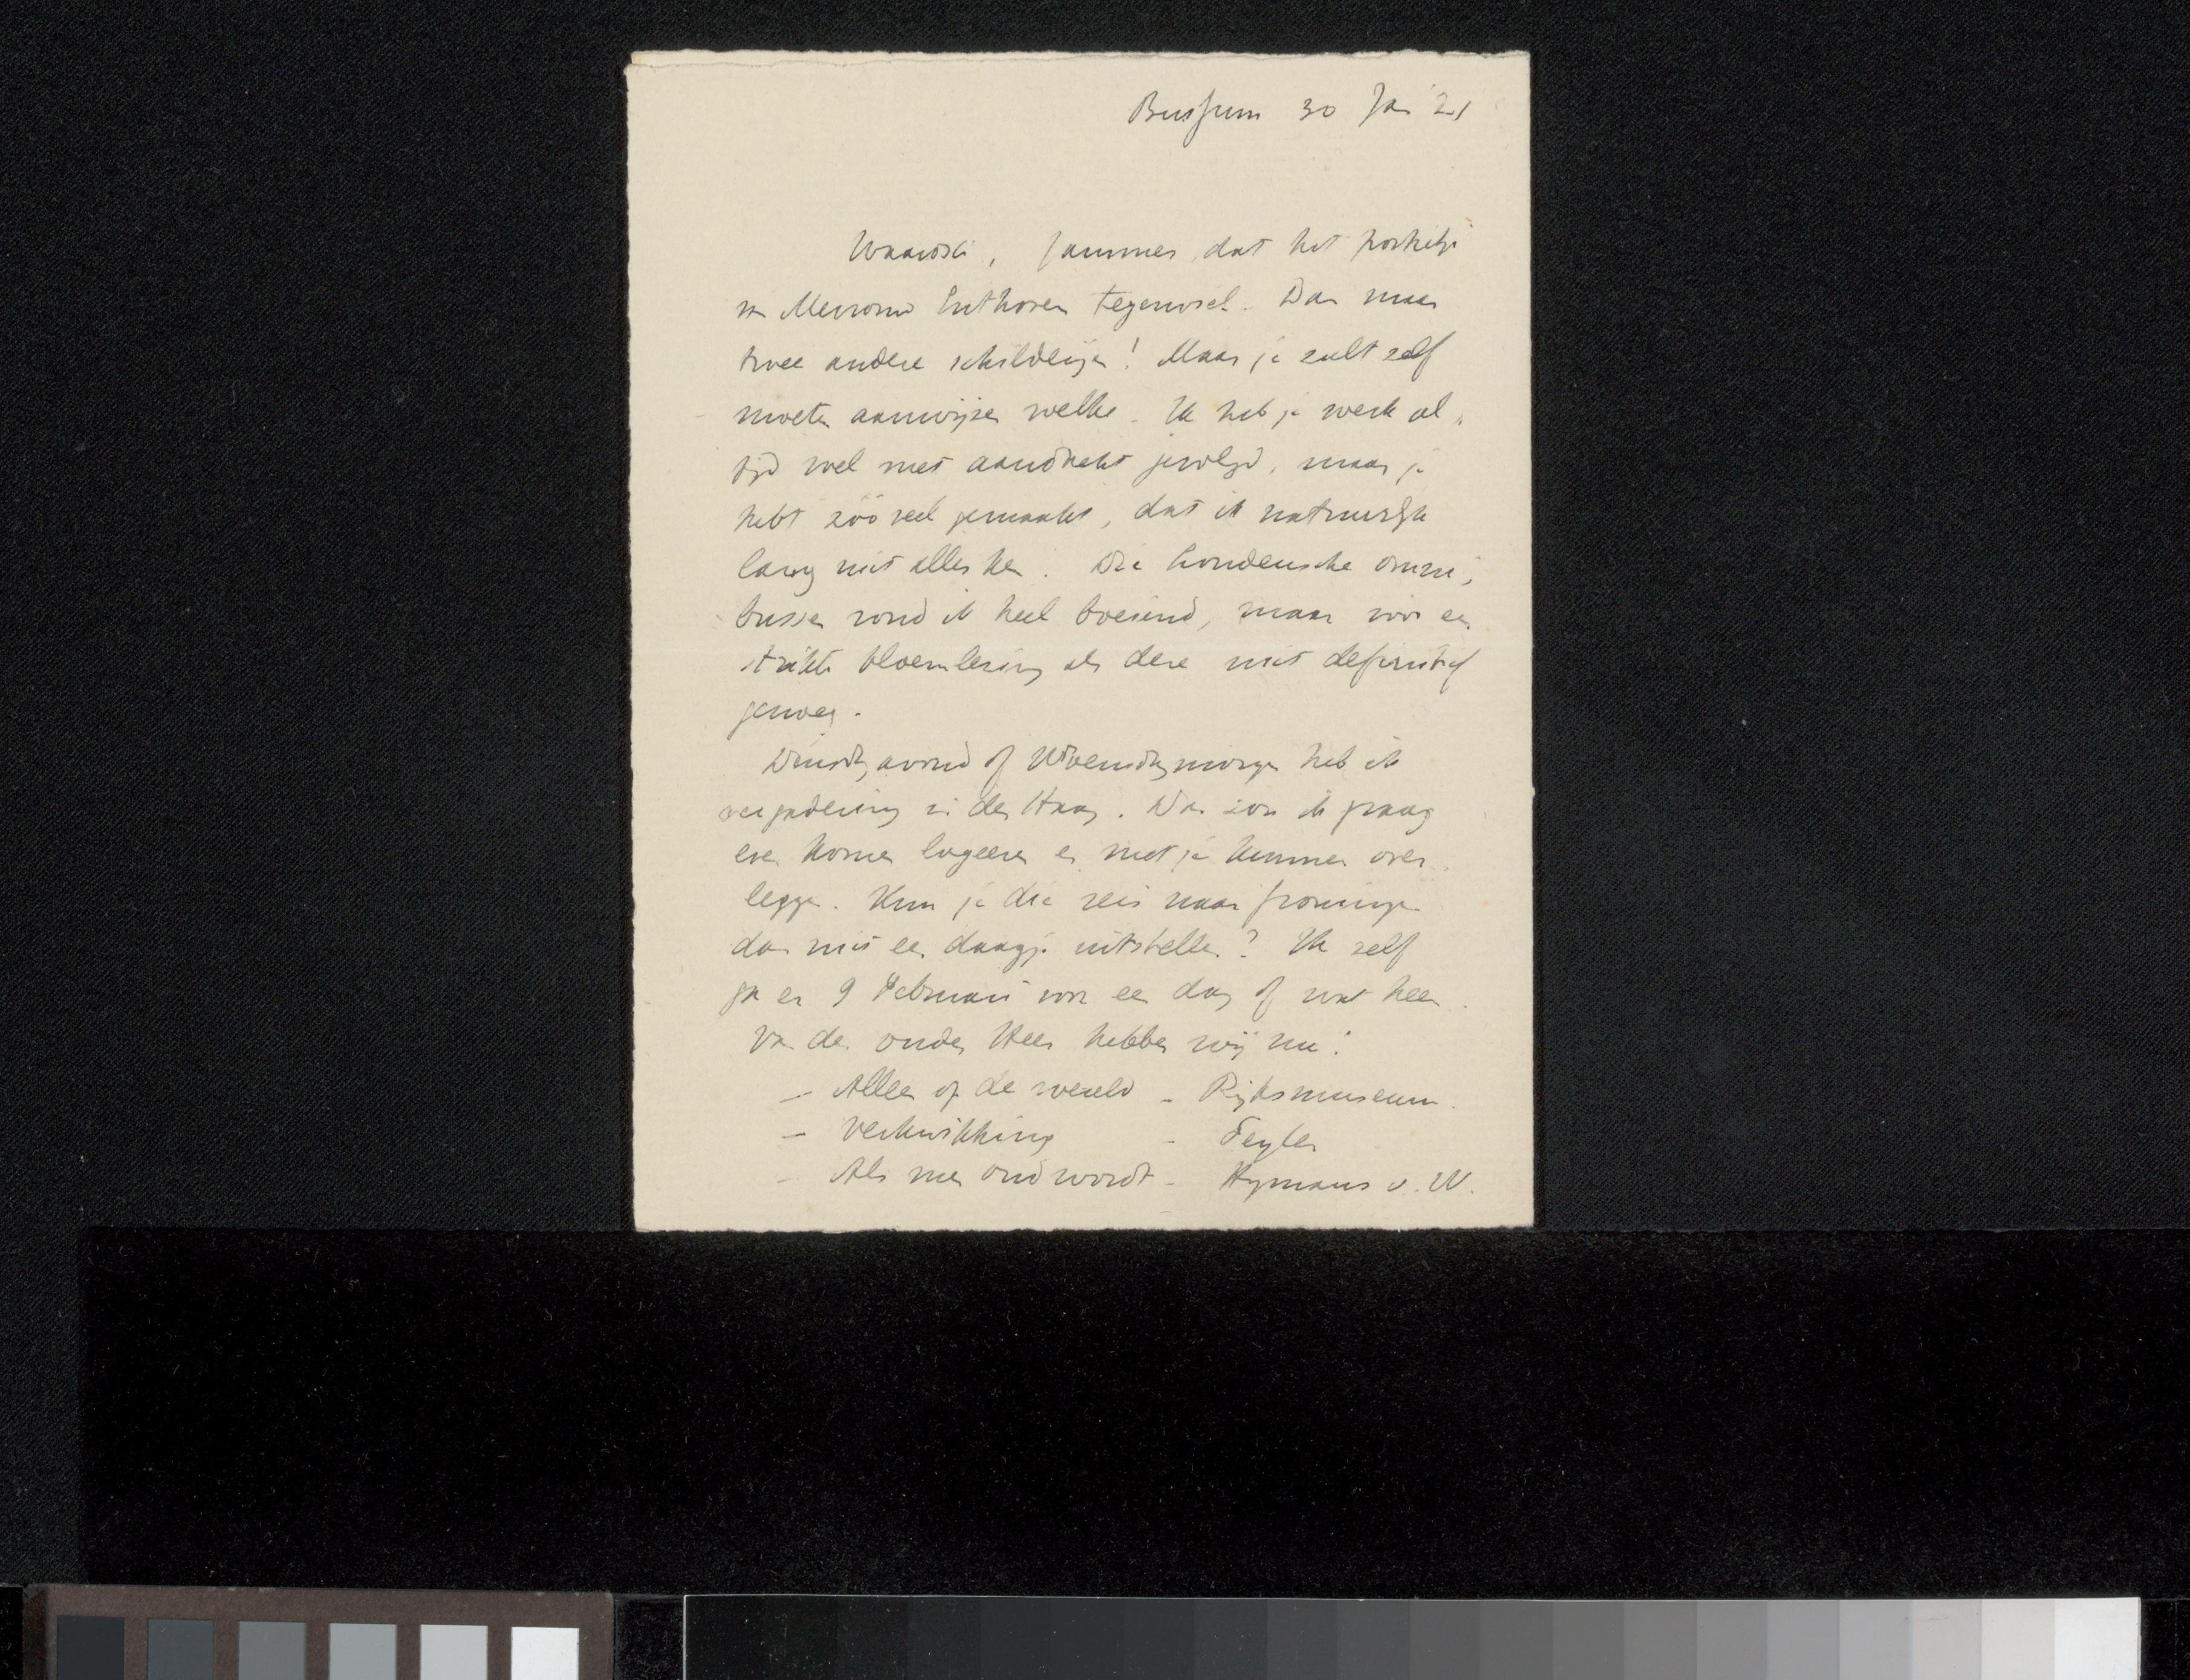 Bussum 30 Jan 21
Waarde, Jammer, dat het portretje
van Mevrouw Enthoven tegenviel. Dan maar
twee andere schilderijen! Maar je zult zelf
moeten aanwijzen welke. Ik heb je werk al„
tijd wel met aandacht gevolgd, maar je
hebt zóó veel gemaakt, dat ik natuurlijk
lang niet alles ken. Die Londensche omni„
bussen vond ik heel boeiend, maar voor een
strikte bloemlezing als deze niet definitief
genoeg.
Dinsdagavond of Woensdagmorgen heb ik
vergadering in den Haag. Dan zou ik graag
even komen logeeren en met je kunnen over„
leggen. Kun je die reis naar Groningen
dan niet een daagje uitstellen? Ik zelf
ga er 9 Februari voor een dag of wat heen.
Van den ouden Heer hebben wij nu:
— Alleen op de wereld - Rijksmuseum.
— Verkwikking - Teyler
— Als men oud wordt - Hymans v. W.